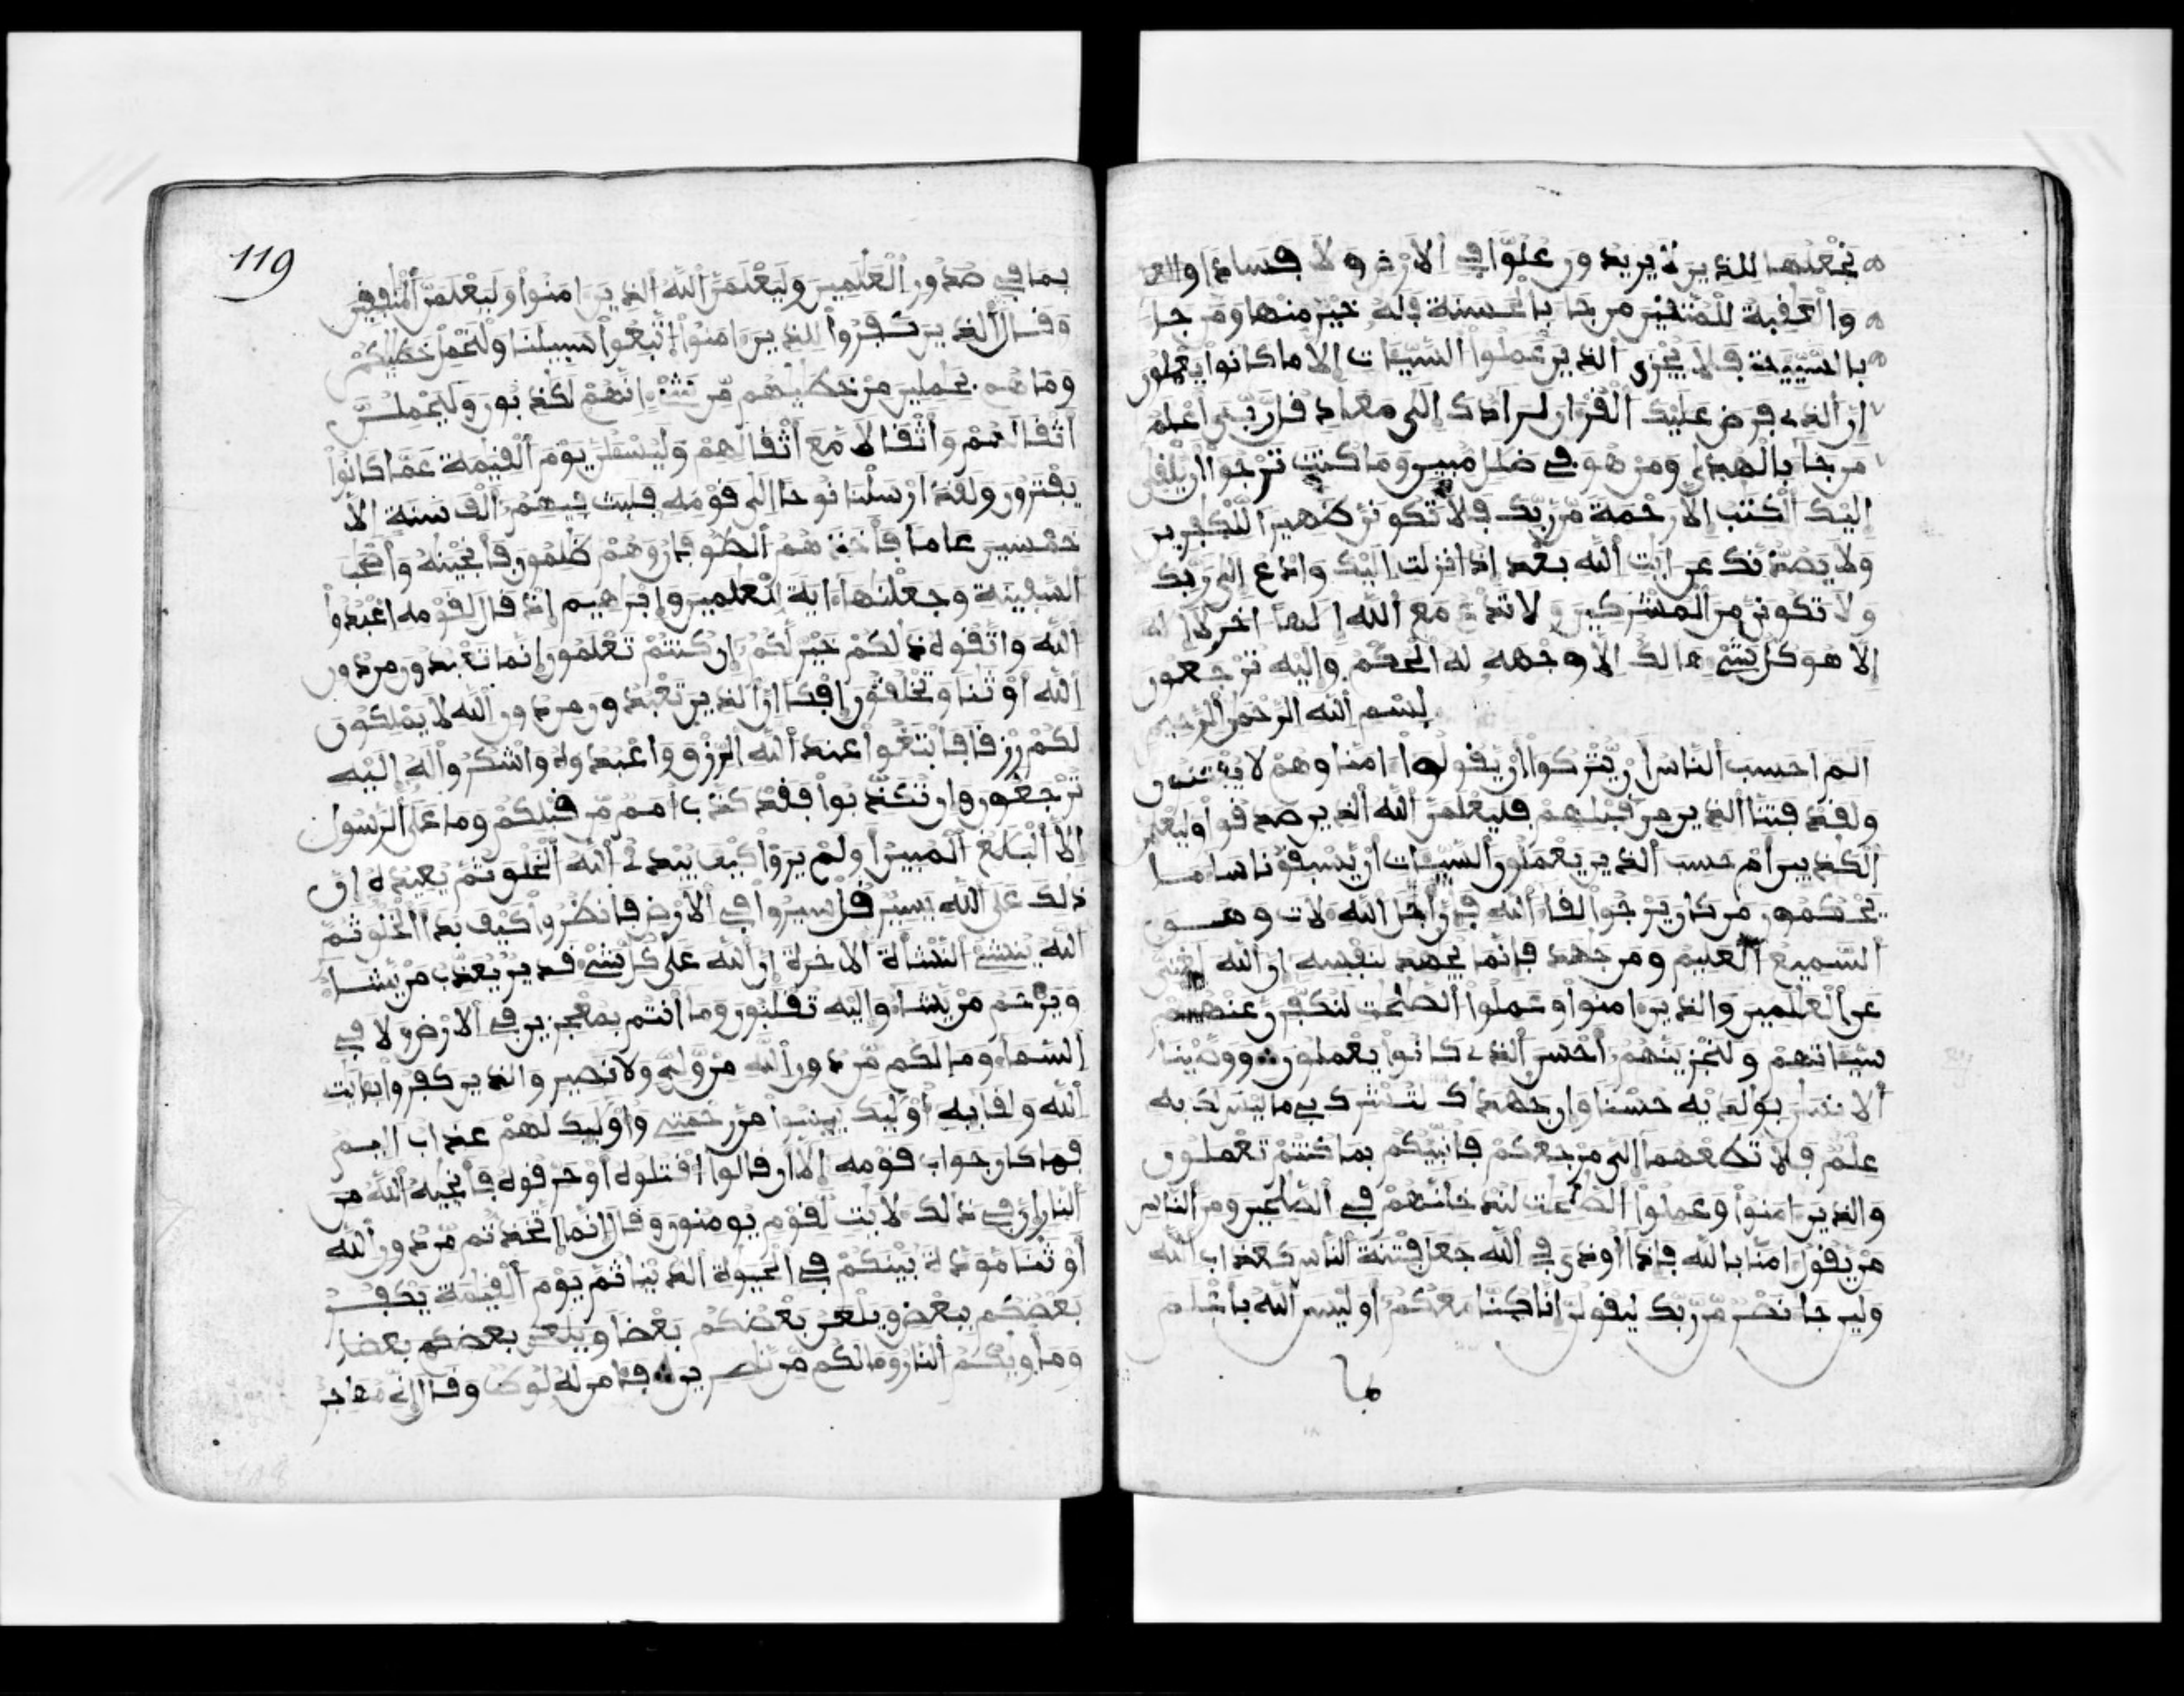 نجعلها للذين لا يريدون علوا في الارض ولا فسادا والعـ
والعقبة للمتقين من جا بالحسنة فله خير منها ومن جا
بالسيئة فلا يجزى الذين عملوا السيات الا ما كانوا يعملون
ان الذي فرض عليك القران لرادك الى معاد قل ربي اعلم
من جا بالهدى ومن هو في ضلل مبين وما كنت ترجوا ان يلقى
اليك الكتب الا رحمة من ربك فلا تكونن ظهيرا للكفرين
ولا يصدنك عن ايت الله بعد اذ انزلت اليك وادع الى ربك
ولا تكونن من المشركين ولا تدع مع الله الها اخر لا اله
الا هو كل شي هالك الا وجهه له الحكم واليه ترجعون
بسم الله الرحمن الرحيم
الم احسب الناس ان يتركوا ان يقولوا امنا وهم لا يفتنون
ولقد فتنا الذين من قبلهم فليعلمن الله الذين صدقوا وليعلمن
الكذبين ام حسب الذين يعملون السيات ان يسبقونا سا ما
يحكمون من كان يرجوا لقا الله فان اجل الله لات وهو
السميع العليم ومن جهد فانما يجهد لنفسه ان الله لغني
عن العلمين والذين امنوا وعملوا الصلحت لنكفرن عنهم
سياتهم ولنجزينهم احسن الذي كانوا يعملون ووصينا
الانسن بولديه حسنا وان جهداك لتشرك بي ما ليس لك به
علم فلا تطعهما الي مرجعكم فانبيكم بما كنتم تعملون
والذين امنوا وعملوا الصلحت لندخلنهم في الصلحين ومن الناس
من يقول امنا بالله فاذا اوذي في الله جعل فتنة الناس كعذاب الله
ولين جا نصر من ربك ليقولن انا كنا معكم اوليس الله باعلم
بما
119
بما في صدور العلمين وليعلمن الله الذين امنوا وليعلمن المنفقين
وقال الذين كفروا للذين امنوا اتبعوا سبيلنا ولنحمل خطيكم
وما هم بحملين من خطيهم من شي انهم لكذبون وليحملن
اثقالهم واثقالا مع اثقالهم وليسئلن يوم القيمة عما كانوا
يفترون ولقد ارسلنا نوحا الى قومه فلبث فيهم الف سنة الا
خمسين عاما فاخذهم الطوفان وهم ظلمون فانجينه واصحب
السفينة وجعلنها اية للعلمين وابرهيم اذ قال لقومه اعبدوا
الله واتقوه ذلكم خير لكم ان كنتم تعلمون انما تعبدون من دون
الله اوثنا وتخلقون افكا ان الذين تعبدون من دون الله لا يملكون
لكم رزقا فابتغوا عند الله الرزق واعبدوه واشكروا له اليه
ترجعون وان تكذبوا فقد كذب امم من قبلكم وما على الرسول
الا البلغ المبين اولم يروا كيف يبدئ الله الخلق ثم يعيده ان
ذلك على الله يسير قل سيروا في الارض فانظروا كيف بدا الخلق ثم
الله ينشئ النشأة الاخرة ان الله على كل شي قدير يعذب من يشا
ويرحم من يشا واليه تقلبون وما انتم بمعجزين في الارض ولا في
السما وما لكم من دون الله من ولي ولا نصير والذين كفروا بايت
الله ولقايه اوليك ييسوا من رحمتي واوليك لهم عذاب اليم
فما كان جواب قومه الا ان قالوا اقتلوه او حرقوه فانجيه الله من
النار ان في ذلك لايت لقوم يومنون وقال انما اتخذتم من دون الله
اوثنا مودة بينكم في الحيوة الدنيا ثم يوم القيمة يكفر
بعضكم ببعض ويلعن بعضكم بعضا ويلعن بعضكم بعضا
ومأويكم النار وما لكم من نصرين فامن له لوط وقال اني مهاجر